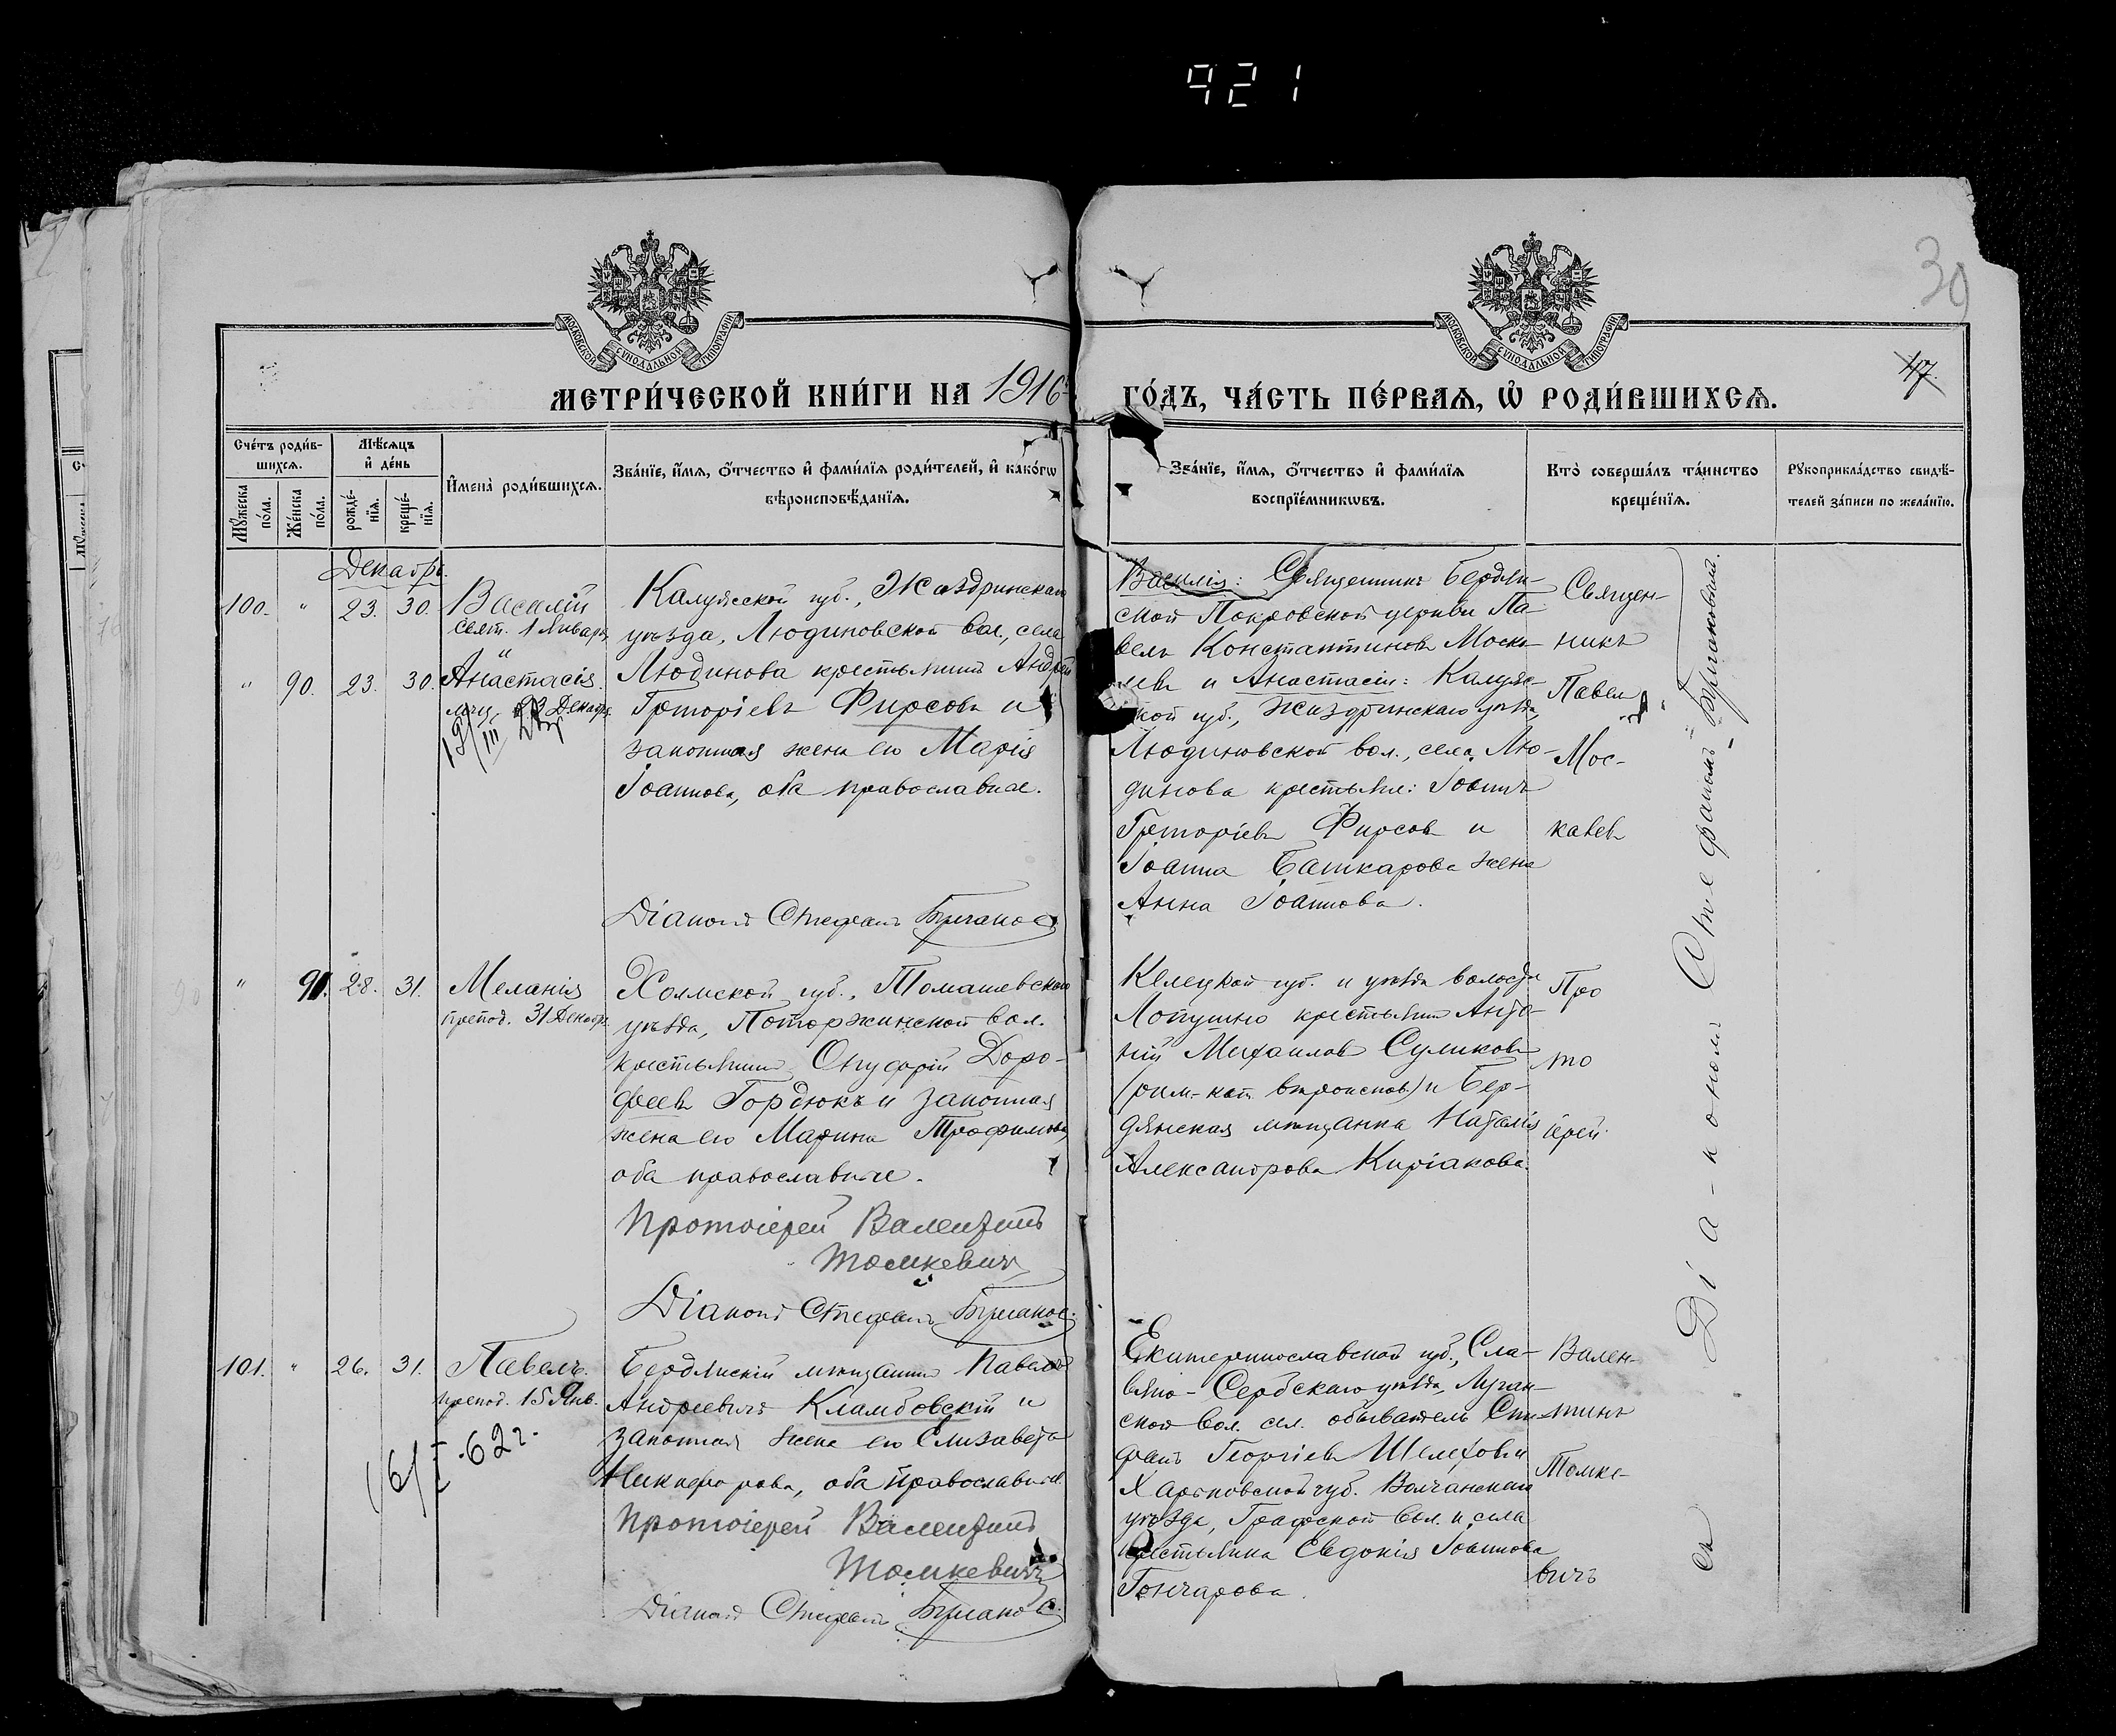 921
30
МОСКОВСКОЙ СѴНОДАЛЬНОЙ ТИПОГРАФІИ
МОСКОВСКОЙ СѴНОДАЛЬНОЙ ТИПОГРАФІИ
47.
МЕТРИ́ЧЕСКОЙ КНИ́ГИ НА 1916 ГО́ДЪ, ЧА́СТЬ ПЕ́РВАѦ, Ѡ҆ РОДИ́ВШИХСѦ.
Сче́тъ роди́в-
шихсѧ.
Мꙋ́жеска
по́ла.
Же́нска
по́ла.
Мѣ́сѧцъ
и҆ де́нь
рожде́-
нїѧ.
креще́-
нїѧ.
И҆мена̀ роди́вшихсѧ.
Зва́нїе, и҆́мѧ, о҆́тчество и҆ фами́лїѧ роди́телей, и҆ како́гѡ
вѣроисповѣ́данїѧ.
Зва́нїе, и҆́мѧ, о҆́тчество и҆ фами́лїѧ
воспрїе́мникѡвъ.
Кто̀ соверша́лъ та́инство
креще́нїѧ.
Рꙋкоприкла́дство свидѣ́-
телей за́писи по жела́нїю.
Декабрь.
100. " 23. 30. Василій
свят. 1 Января
" 90. 23. 30. Анастасія.
муч. 22 Декабр.
19/III
Калужской губ., Жиздринскаго
уѣзда, Людиновской вол., села
Людинова крестьянинъ Андрей
Григоріевъ Фирсовъ и
законная жена его Марія
Іоаннова, оба православные.
Діаконъ Стефанъ Бриганов
Василія: Священникъ Бердян-
ской Покровской церкви Па-
велъ Константиновъ Моска-
левъ и Анастасіи: Калуж-
ской губ., Жиздринскаго уѣзда,
Людиновской вол., села Лю-
динова крестьяне: Іоаннъ
Григоріевъ Фирсовъ и
Іоанна Башкарова жена
Анна Іоаннова.
Священ-
никъ
Павелъ
Мос-
калев
" 91. 28. 31. Меланія
препод. 31 Декабр.
Холмской губ., Томашевскаго
уѣзда, Потуржинской вол.
крестьянинъ Онуфрій Доро-
феевъ Гордюкъ и законная
жена его Марина Трофимова,
оба православные.
Протоіерей Валентинъ
Томкевичъ
Діаконъ Стефанъ Бриганов.
Келецкой губ. и уѣзда волости
Лопушно крестьянинъ Анто-
ній Михаиловъ Суликовъ
(рим.-кат. вѣроиспов.) и Бер-
дянская мѣщанка Наталія
Александрова Киріакова.
Про
то
іерей
101. " 26. 31. Павелъ.
препод. 15 Янв.
16/I 62 г.
Бердянскій мѣщанинъ Павелъ
Андреевичъ Кламбовскій и
законная жена его Елизавета
Никифорова, оба православные.
Протоіерей Валентинъ
Томкевичъ
Діаконъ Стефанъ Бриганов.
Екатеринославской губ., Сла-
вяно-Сербскаго уѣзда, Луган-
ской вол. сел. обыватель Сте-
фанъ Георгіевъ Шелеховъ и
Харьковской губ. Волчанскаго
уѣзда, Графской вол. и села
крестьянка Евдокія Іоаннова
Гончарова.
Вален-
тинъ
Томке-
вичъ
съ Ді-а-кономъ Стефаномъ Бригановымъ.